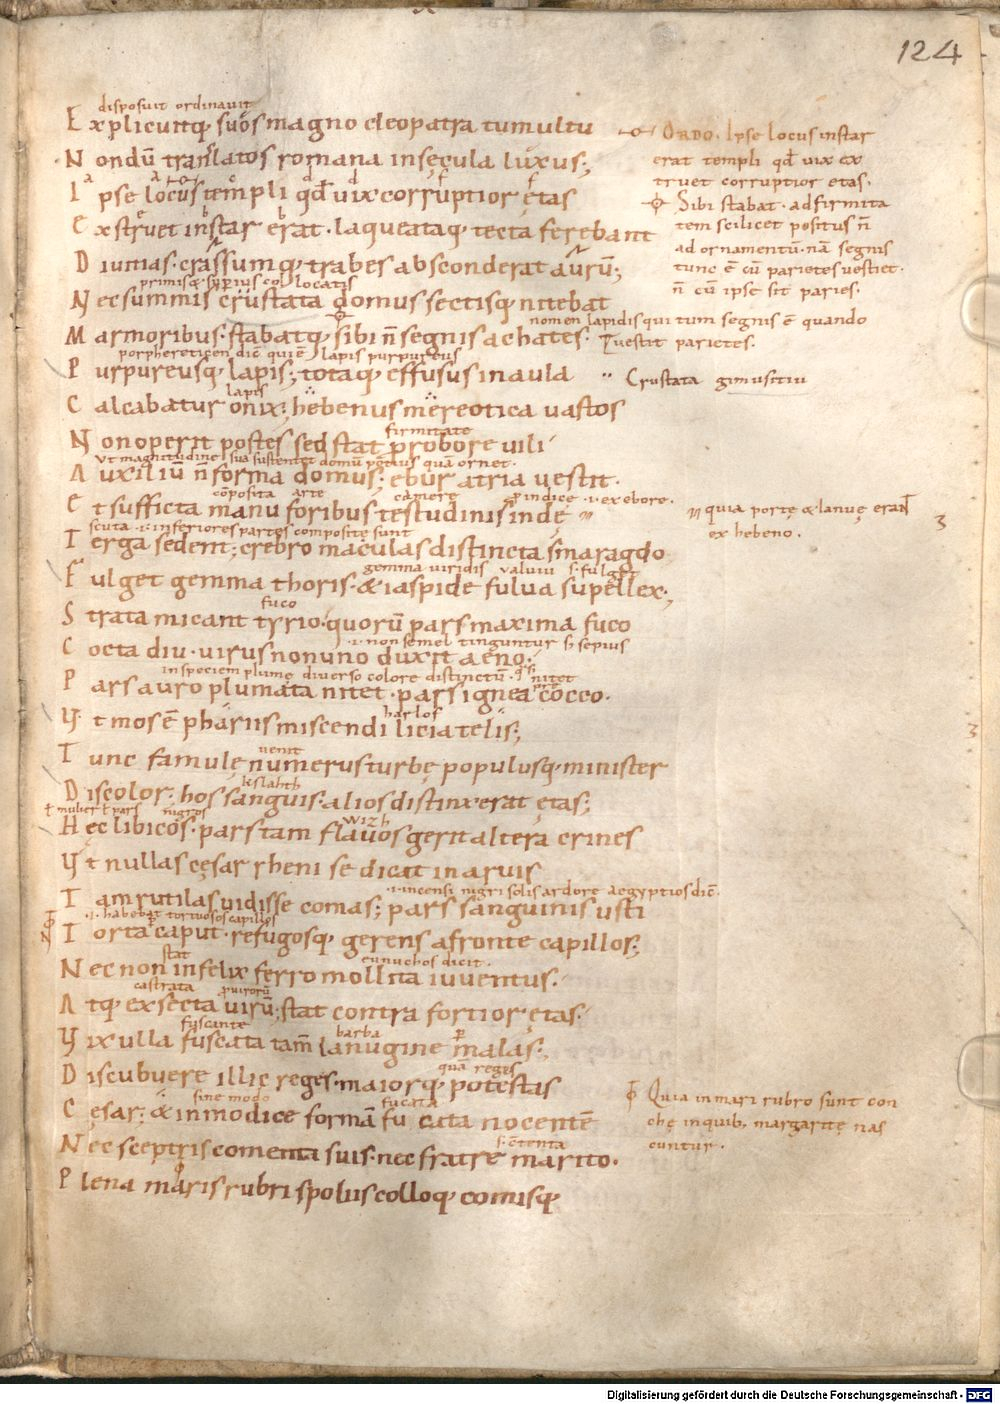 124
disposuit ordinauit
Explicuitq; suos magno cleopatra tumultu
Nondū translatos romana in sęcula luxus;
Ipse locus templi qđ uix corruptior ętas
Exstruet instar erat. laqueataq; tecta ferebant
Diuitias. crassumq; trabes absconderat aurū;
locatis
Nec summis crustata domus sectisq; nitebat
Marmoribus. stabatq; sibi ñ segnis achates.
porphereticen dic̄ qui ē lapis purpureus
Purpureusq; lapis; totaq; effusus in aula
lapis
Calcabatur onix; hebenus mereotica uastos
firmitate
Non operit postes sed stat pro robore uili
ut magnitudine sua sustentet domū potius quā ornet.
Auxiliū ñ forma domus; ebur atria uestit.
cōposita arte camere pro indice .i. ex ebore.
Et suffecta manu foribus testudinis indę
scuta .i. inferiores partes composite sunt
Terga sedent; crebro maculas distincta smaragdo
gemma uiridis s. fulget
Fulget gemma thoris. & iaspide fulua supellex;
fuco
Strata micant tyrio. quorū pars maxima fuco
.i. non semel tinguntur sꝫ sepius
Cocta diu. uirus non uno duxit aeno;
in speciem plume diuerso colore distinctū. nitet
Pars auro plumata nitet. pars ignea cocco.
harlof
Vt mos ē phariis miscendi licia telis;
uenit
Tunc famulę numerus turbę populusq; minister
kslahth
Discolor; hos sanguis. alios distinxerat ętas;
ł mulier ł pars nigros wizh
Hec libicos. pars tam flauos gerit altera crines
Vt nullas cęsar rheni se dicat in aruis
.i. incensi nigri solis ardore aegyptios dic̄.
Tam rutilas uidisse comas; pars sanguinis usti
.i. habebat tortuosos capillos
Torta caput. refugosq; gerens a fronte capillos;
stat eunuchos dicit.
Nec non infelix ferro mollita iuuentus.
castrata pro uirorū
Atq; exsecta uirū; stat contra fortior ętas.
fuscante barba
Vix ulla fuscata tam̄ lanugine malas;
quā reges
Discubuere illic reges. maiorq; potestas
sine modo fucata
Cęsar; & inmodice formā fucata nocentē
s. ctenta
Nec sceptris contenta suis. nec fratre marito.
Plena maris rubri spoliis colloq; comisq;
Ordo. Ipse locus instar
erat templi qđ uix ex
truet corruptior etas.
Sibi stabat. ad firmita
tem scilicet positus ñ
ad ornamentū. nā segnis
tunc ē cū parietes uestiet.
ñ cū ipse sit paries.
nomen lapidis qui tum segnis ē quando
uestit parietes.
Crustata
quia portę & ianuę erant
ex hebeno.
Quia in mari rubro sunt con
chę in quib; margaritę nas
cuntur.
Digitalisierung gefördert durch die Deutsche Forschungsgemeinschaft - DFG